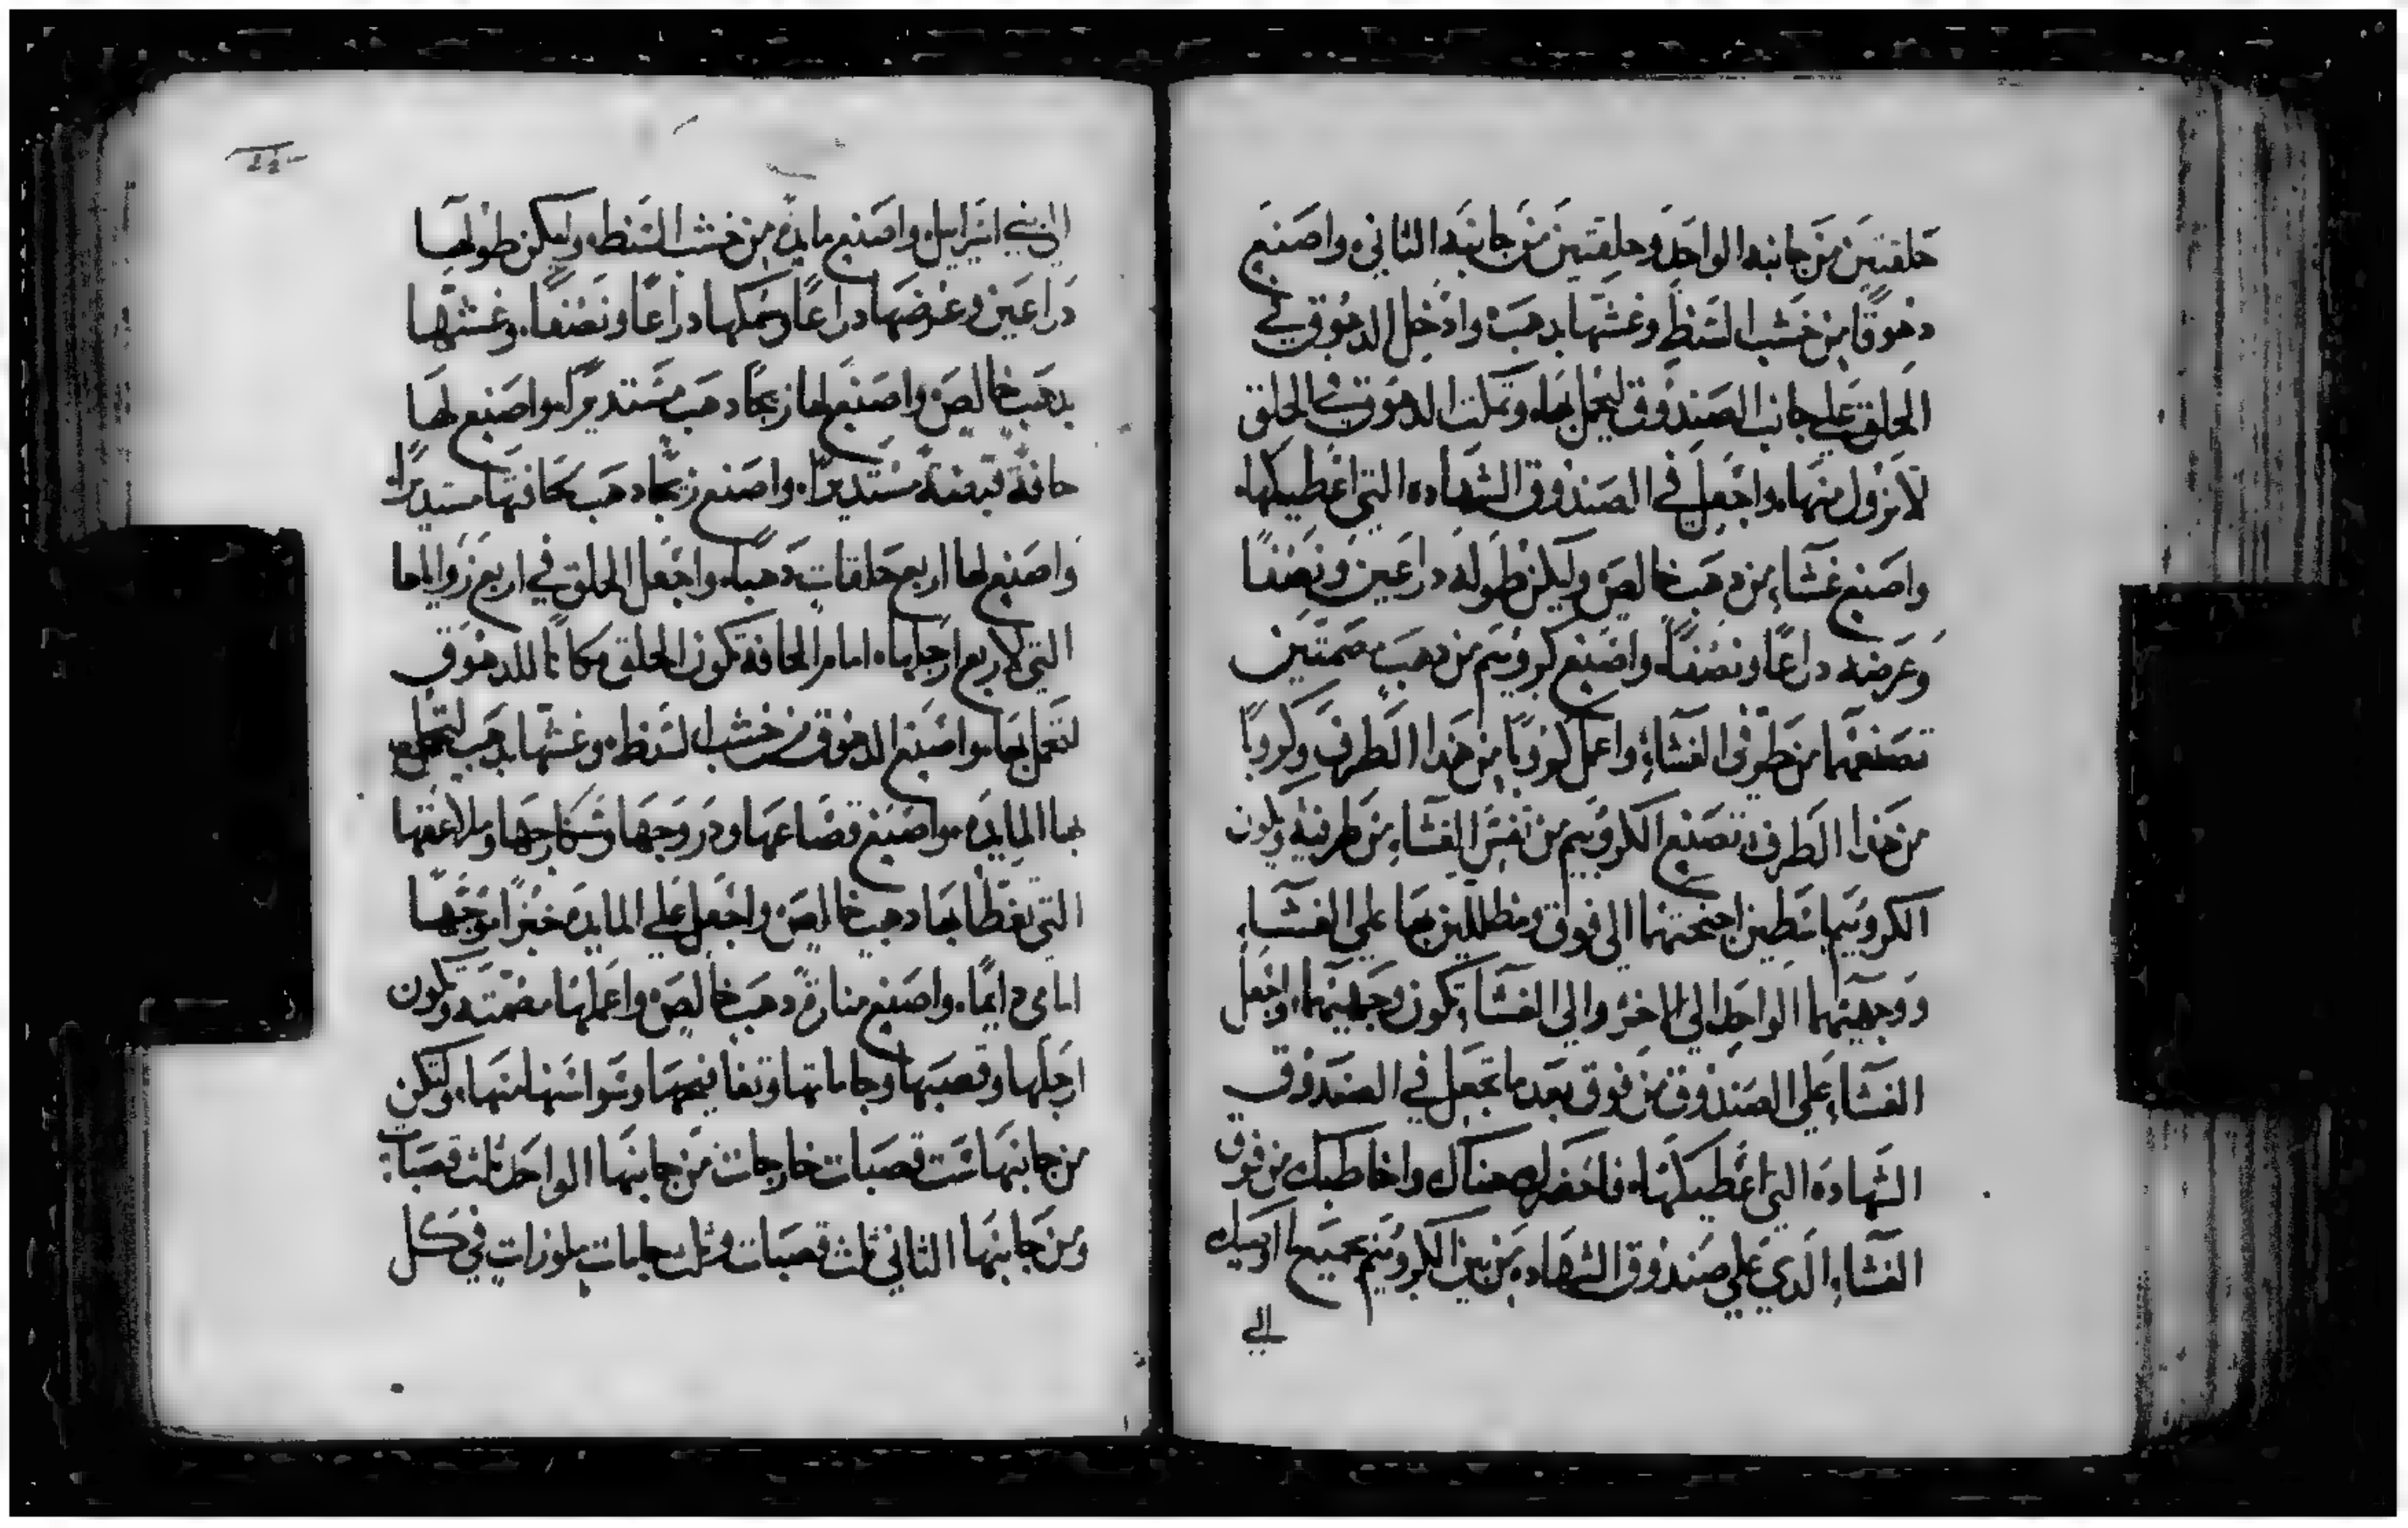 حلقتين من جانبه الواحد وحلقتين من جانبه الثاني واصنع
دهوقا من خشب السنط وغشها بدهب وادخل الدهوق في
الحلق علي جانب الصندوق ليحمل بها وتمكت الدهوق في الحلق
لا تزول منها واجعل في الصندوق الشهاده التي اعطيكها
واصنع غشاء من دهب خالص وليكن طوله دراعين ونصفا
وعرضه دراعا ونصفا واصنع كروبيم من دهب مصمتين
تصنعهما من طرفي الغشاء واعمل كروبا من هدا الطرف وكروبا
من هدا الطرف تصنع الكروبيم من نفس الغشاء من طرفيه ويكون
الكروبيم باسطين اجنحتهما الي فوق ومظللين بها علي الغشاء
ووجهيهما الواحد الي الاخر والي الغشاء يكون وجهيهما واجعل
الغشاء علي الصندوق من فوق بعد ما تجعل في الصندوق
الشهاده التي اعطيكها فاحضرك هناك واخاطبك من فوق
الغشاء الدي علي صندوق الشهاده من بين الكروبيم بجميع ما اوصيك
الي
الي بني اسراييل واصنع مايده من خشب السنط وليكن طولها
دراعين وعرضها دراعا وسمكها دراعا ونصفا وغشها
بدهب خالص واصنع لها زيجا دهب مستديرا واصنع لها
حافة قبضة مستديرا واصنع زيجا دهب لحافتها مستديرا
واصنع لها اربع حلقات دهبا واجعل الحلق في اربع زواياها
التي لاربع ارجلها امام الحافة تكون الحلق مكانا للدهوق
لتحمل بها واصنع الدهوق من خشب السنط وغشها بدهب لتحمل
بها المايده واصنع قصاعها ودروجها وسكارجها وملاعقها
التي يغطا بها دهب خالص واجعل علي المايده خبزا موجها
امامي دايما واصنع منارة دهب خالص واعملها مصمته وتكون
ارجلها وقصبها وجاماتها وتفافيحها وسواسنها منها ولتكن
من جانبها ست قصبات خارجات من جانبها الواحد ثلث قصبات
ومن جانبها الثاني ثلث قصبات وثلث جامات ملوزات في كل